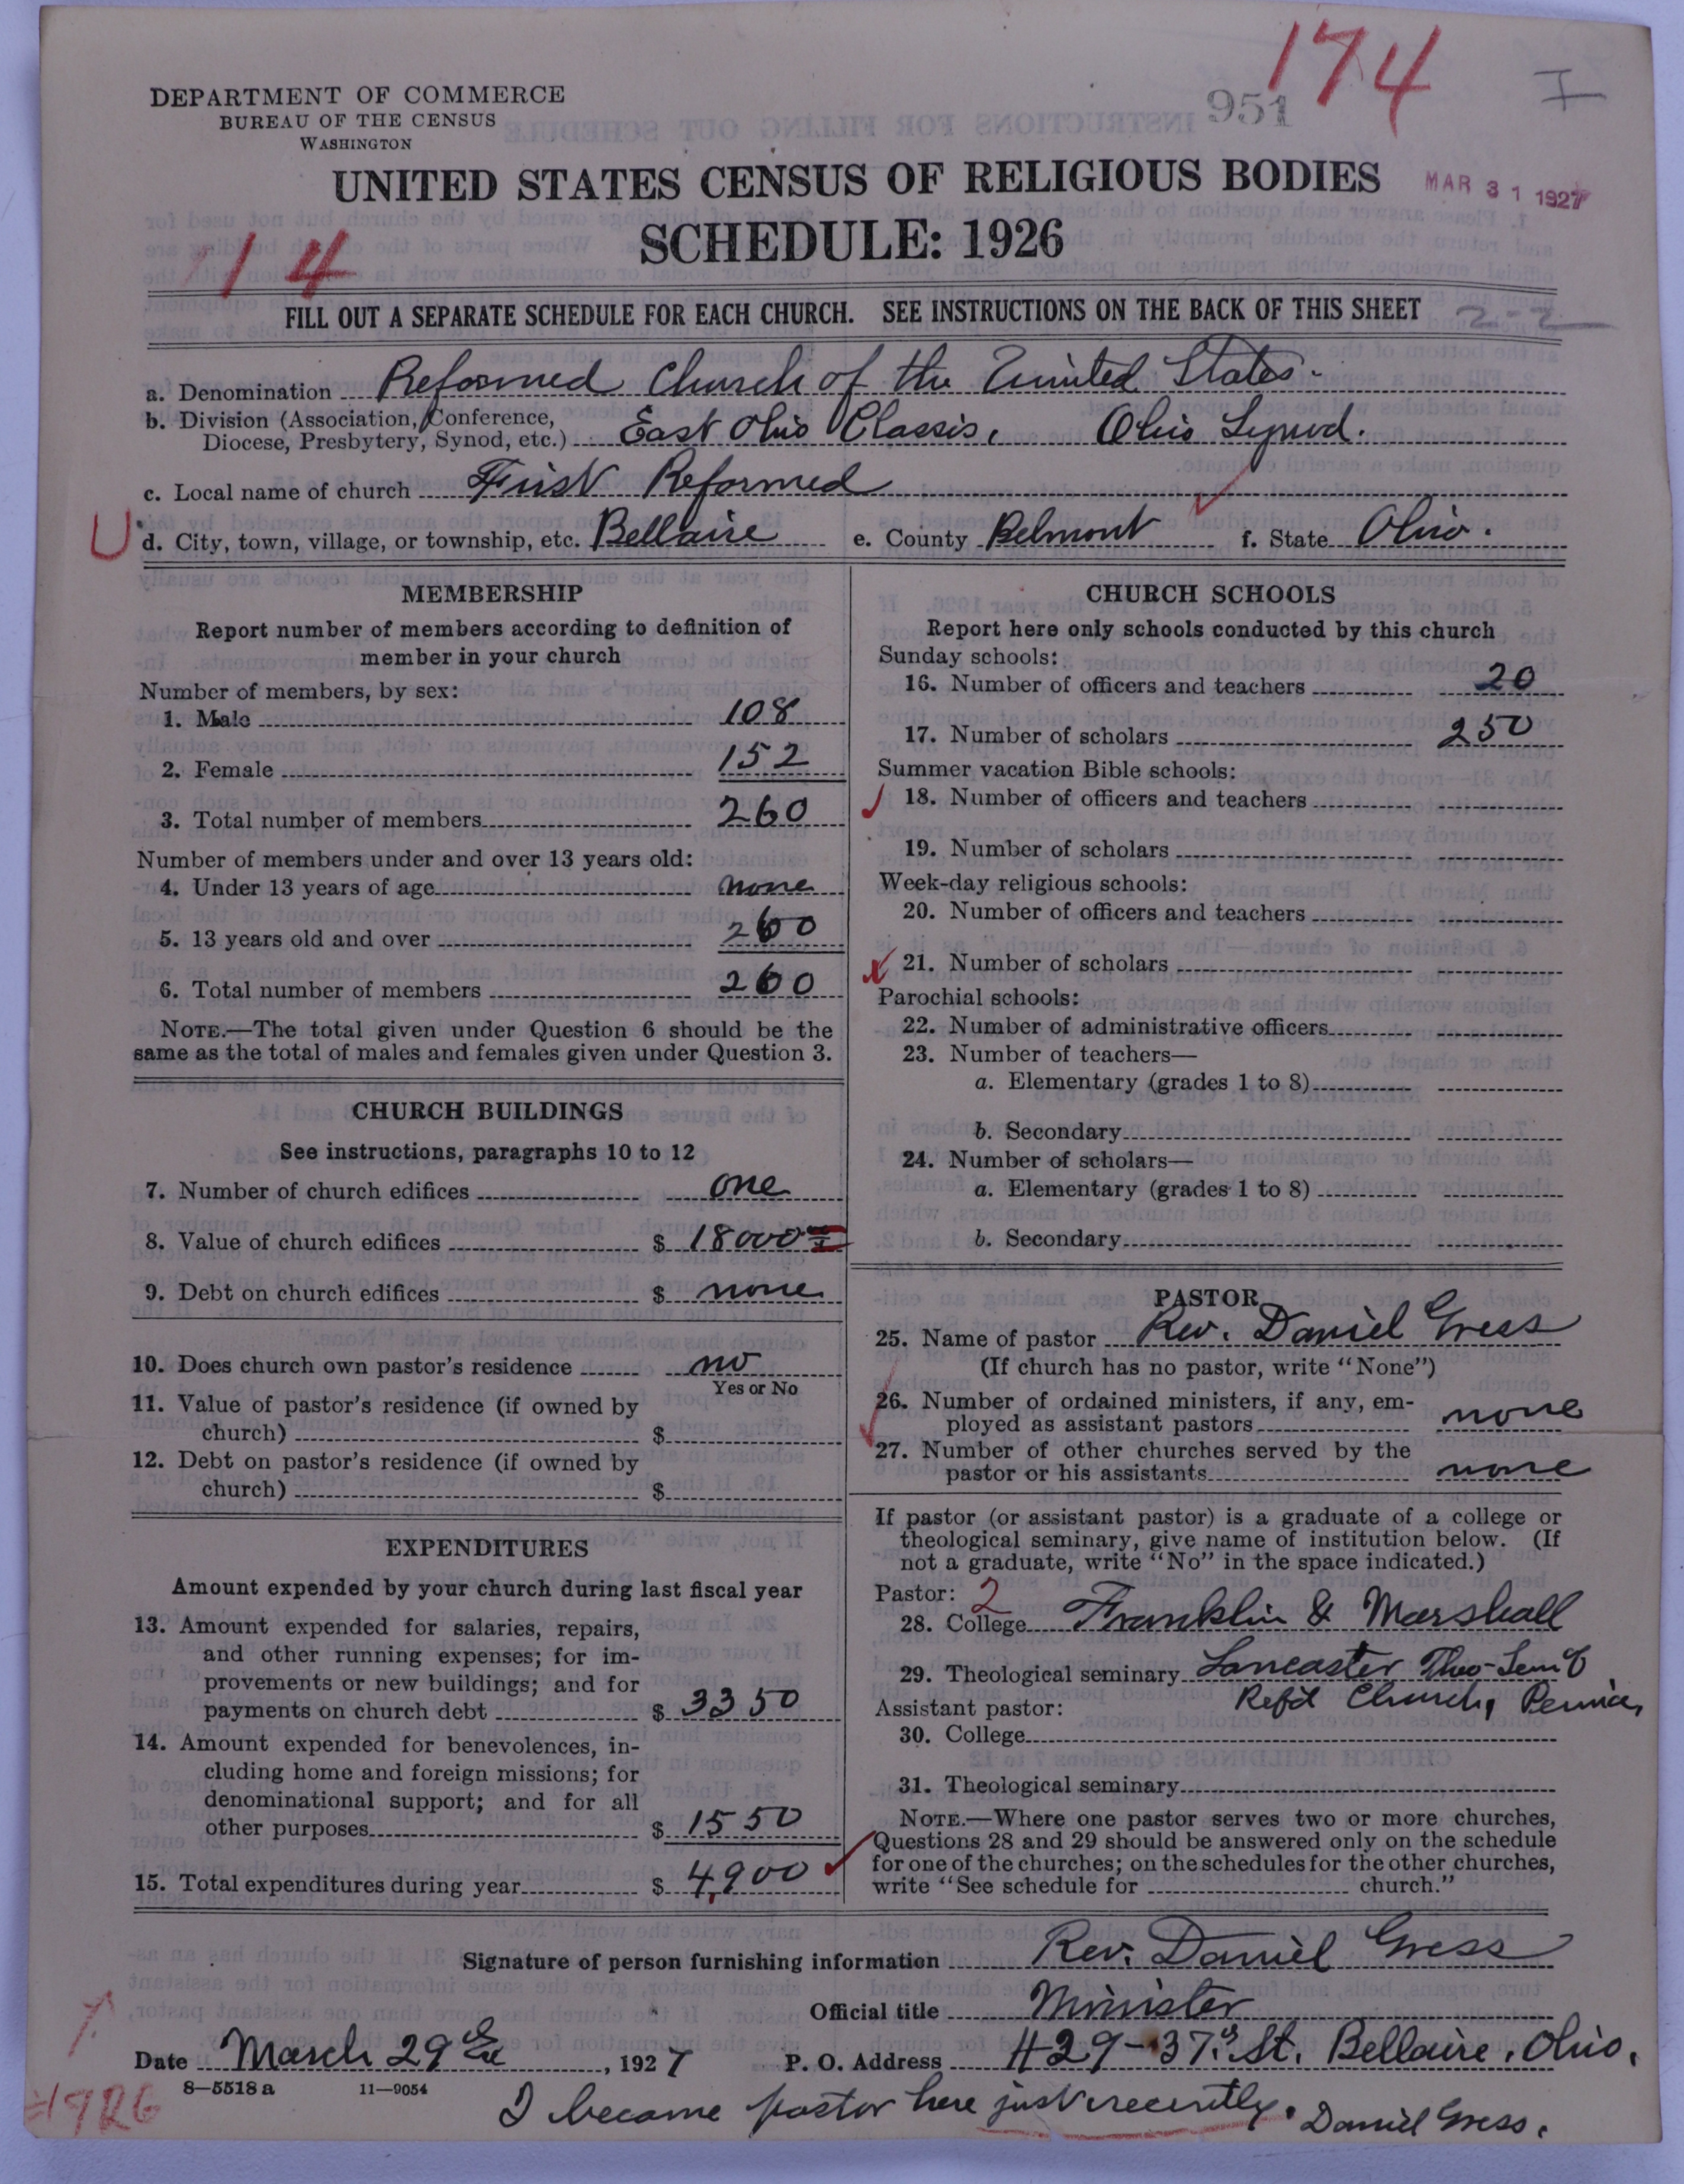 174
951
I
DEPARTMENT OF COMMERCE
BUREAU OF THE CENSUS
WASHINGTON
UNITED STATES CENSUS OF RELIGIOUS BODIES
MAR 31 1927
SCHEDULE: 1926
14
FILL OUT A SEPARATE SCHEDULE FOR EACH CHURCH. SEE INSTRUCTIONS ON THE BACK OF THIS SHEET
2-2
a. Denomination Reformed Church of the United States.
b. Division (Association, Conference,
Diocese, Presbytery, Synod, etc.) East Ohio Classis, Ohio Synod.
c. Local name of church First Reformed
U d. City, town, village, or township, etc. Bellaire e. County Belmont f. State Ohio.
MEMBERSHIP
Report number of members according to definition of
member in your church
Number of members, by sex:
1. Male 108
2. Female 152
3. Total number of members 260
Number of members under and over 13 years old:
4. Under 13 years of age none
5. 13 years old and over 260
6. Total number of members 260
NOTE.—The total given under Question 6 should be the
same as the total of males and females given under Question 3.
CHURCH BUILDINGS
See instructions, paragraphs 10 to 12
7. Number of church edifices one
8. Value of church edifices $ 18000
9. Debt on church edifices $ none
10. Does church own pastor's residence no
Yes or No
11. Value of pastor's residence (if owned by
church) $
12. Debt on pastor's residence (if owned by
church) $
EXPENDITURES
Amount expended by your church during last fiscal year
13. Amount expended for salaries, repairs,
and other running expenses; for im-
provements or new buildings; and for
payments on church debt $ 3350
14. Amount expended for benevolences, in-
cluding home and foreign missions; for
denominational support; and for all
other purposes $ 1550
15. Total expenditures during year $ 4,900
CHURCH SCHOOLS
Report here only schools conducted by this church
Sunday schools:
16. Number of officers and teachers 20
17. Number of scholars 250
Summer vacation Bible schools:
18. Number of officers and teachers
19. Number of scholars
Week-day religious schools:
20. Number of officers and teachers
21. Number of scholars
Parochial schools:
22. Number of administrative officers
23. Number of teachers—
a. Elementary (grades 1 to 8)
b. Secondary
24. Number of scholars—
a. Elementary (grades 1 to 8)
b. Secondary
PASTOR
25. Name of pastor Rev. Daniel Gress
(If church has no pastor, write "None")
26. Number of ordained ministers, if any, em-
ployed as assistant pastors none
27. Number of other churches served by the
pastor or his assistants none
If pastor (or assistant pastor) is a graduate of a college or
theological seminary, give name of institution below. (If
not a graduate, write "No" in the space indicated.)
Pastor: 2
28. College Franklin & Marshall
29. Theological seminary Lancaster Theo-Sem
Ref'd Church, Penna,
Assistant pastor:
30. College
31. Theological seminary
NOTE.—Where one pastor serves two or more churches,
Questions 28 and 29 should be answered only on the schedule
for one of the churches; on the schedules for the other churches,
write "See schedule for church."
Signature of person furnishing information Rev. Daniel Gress
Official title Minister
Date March 29th, 1927 P. O. Address 429-37th St. Bellaire, Ohio.
8—5518 a 11—9054
1926
I became pastor here just recently. Daniel Gress.